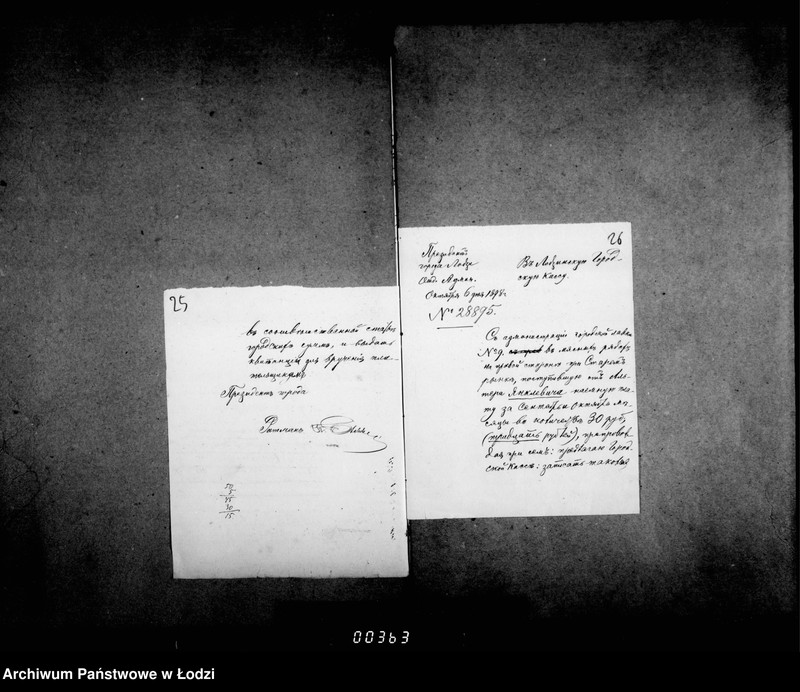 25
въ соотвѣтственной статьѣ
городскихъ суммъ, и выдать
квитанцію для врученія пла-
тельщикамъ
Президентъ города
50
5
45
30
15
26
Президентъ
города Лодзи
Отд. Админ.
Октября 6 дня 1898 г.
№ 28895.
Въ Лодзинскую Город-
скую Кассу.
Съ администраціи городской лавки
№ 9. въ мясномъ ряду
на правой сторонѣ при Старомъ
рынкѣ, поступившую отъ
Яскевича наемную пла-
ту за Сентябрь Октябрь мѣ-
сяцы въ количествѣ 30 руб,
(тридцать рублей), препровож-
дая при семъ: предлагаю Город-
ской Кассѣ: записать таковыя
00363
Archiwum Państwowe w Łodzi